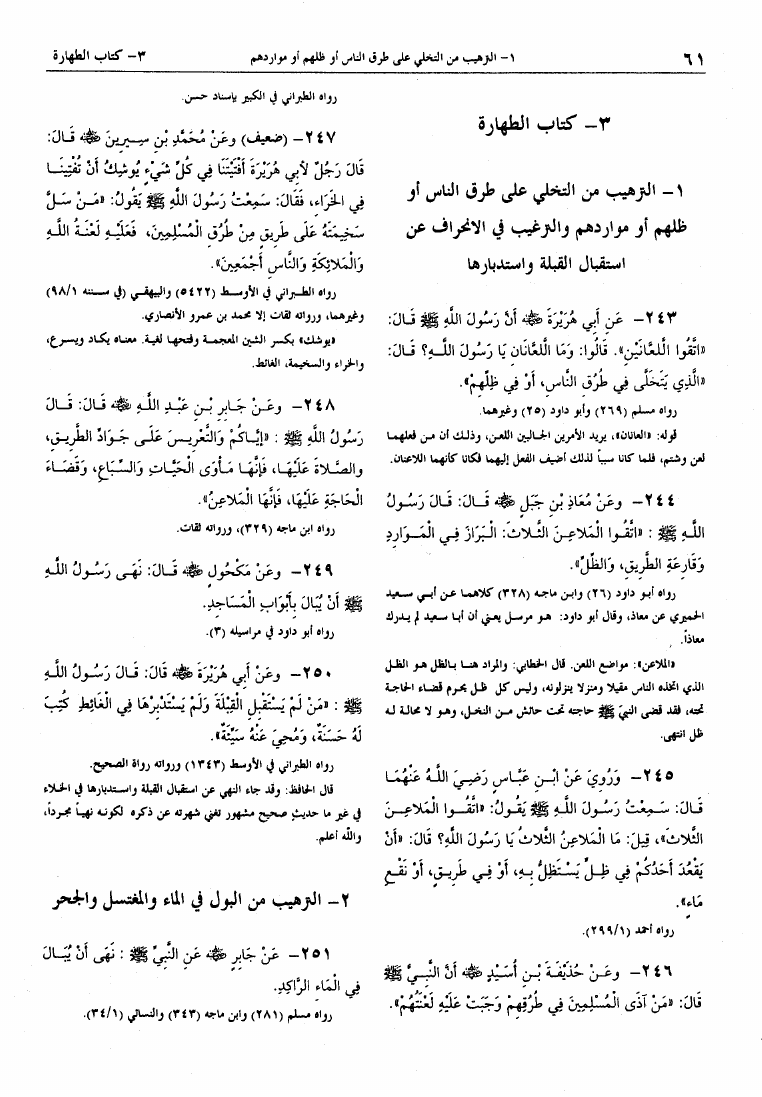 ٦١
١- الترهيب من التخلي على طرق الناس أو ظلهم أو مواردهم
٣- كتاب الطهارة
٣- كتاب الطهارة
١- الترهيب من التخلي على طرق الناس أو
ظلهم أو مواردهم والترغيب في الانحراف عن
استقبال القبلة واستدبارها
٢٤٣- عَنِ أَبِي هُرَيْرَةَ ﷺ أَنَّ رَسُولَ اللَّهِ ﷺ قَالَ:
«اتَّقُوا اللَّعَّانَيْنِ». قَالُوا: وَمَا اللَّعَّانَانِ يَا رَسُولَ اللَّهِ؟ قَالَ:
«الَّذِي يَتَخَلَّى فِي طُرُقِ النَّاسِ، أَوْ فِي ظِلِّهِمْ».
رواه مسلم (٢٦٩) وأبو داود (٢٥) وغيرهما.
قوله: «العانان»، يريد الأمرين الجالبين اللعن، وذلك أن من فعلهما
لعن وشتم، فلما كانا سبباً لذلك أضيف الفعل إليهما فكانا كأنهما اللاعنان.
٢٤٤- وعَنْ مُعَاذِ بْنِ جَبَلٍ ﷺ قَالَ: قَالَ رَسُولُ
اللَّهِ ﷺ : «اتَّقُوا الْمَلاَعِنَ الثَّلاَثَ: الْبَرَازَ فِي الْمَوَارِدِ
وَقَارِعَةِ الطَّرِيقِ، وَالظِّلِّ».
رواه أبو داود (٢٦) وابن ماجه (٣٢٨) كلاهما عن أبي سعيد
الحميري عن معاذ، وقال أبو داود: هو مرسل يعني أن أبا سعيد لم يدرك
معاذاً.
«الملاعن»: مواضع اللعن. قال الخطابي: والمراد هنا بالظل هو الظل
الذي اتخذه الناس مقيلا ومنزلا ينزلونه، وليس كل ظل يحرم قضاء الحاجة
تحته، فقد قضى النبيّ ﷺ حاجته تحت حائش من النخل، وهو لا محالة له
ظل انتهى.
٢٤٥- وَرُوِيَ عَنْ ابْنِ عَبَّاسٍ رَضِيَ اللَّهُ عَنْهُمَا
قَالَ: سَمِعْتُ رَسُولَ اللَّهِ ﷺ يَقُولُ: «اتَّقُوا الْمَلاَعِنَ
الثَّلاَثَ»، قِيلَ: مَا الْمَلاَعِنُ الثَّلاَثُ يَا رَسُولَ اللَّهِ؟ قَالَ: «أَنْ
يَقْعُدَ أَحَدُكُمْ فِي ظِلٍّ يَسْتَظِلُّ بِهِ، أَوْ فِي طَرِيقٍ، أَوْ نَقْعِ
مَاءٍ».
رواه أحمد (٢٩٩/١).
٢٤٦- وعَنْ حُذَيْفَةَ بْنِ أُسَيْدٍ ﷺ أَنَّ النَّبِيَّ ﷺ
قَالَ: «مَنْ آذَى الْمُسْلِمِينَ فِي طُرُقِهِمْ وَجَبَتْ عَلَيْهِ لَعْنَتُهُمْ».
رواه الطبراني في الكبير بإسناد حسن.
٢٤٧- (ضعيف) وعَنْ مُحَمَّدِ بْنِ سِيرِينَ ﷺ قَالَ:
قَالَ رَجُلٌ لأَبِي هُرَيْرَةَ أَفْتَيْتَنَا فِي كُلِّ شَيْءٍ يُوشِكُ أَنْ تُفْتِيَنَا
فِي الخَرَاءِ، فَقَالَ: سَمِعْتُ رَسُولَ اللَّهِ ﷺ يَقُولُ: «مَنْ سَلَّ
سَخِيمَتَهُ عَلَى طَرِيقٍ مِنْ طُرُقِ الْمُسْلِمِينَ، فَعَلَيْهِ لَعْنَةُ اللَّهِ
وَالْمَلاَئِكَةِ وَالنَّاسِ أَجْمَعِينَ».
رواه الطبراني في الأوسط (٥٤٢٢) والبيهقي (في سننه ٩٨/١)
وغيرهما، ورواته ثقات إلا محمد بن عمرو الأنصاري.
«يوشك» بكسر الشين المعجمة وفتحها لغية. معناه يكاد ويسرع،
والخراء والسخيمة، الغائط.
٢٤٨- وعَنْ جَابِرِ بْنِ عَبْدِ اللَّهِ ﷺ قَالَ: قَالَ
رَسُولُ اللَّهِ ﷺ : «إِيَّاكُمْ وَالتَّعْرِيسَ عَلَى جَوَادِّ الطَّرِيقِ،
والصَّلاَةَ عَلَيْهَا، فَإِنَّهَا مَأْوَى الْحَيَّاتِ وَالسِّبَاعِ، وَقَضَاءَ
الْحَاجَةِ عَلَيْهَا، فَإِنَّهَا الْمَلاَعِنُ».
رواه ابن ماجه (٣٢٩)، ورواته ثقات.
٢٤٩- وعَنْ مَكْحُولٍ ﷺ قَالَ: نَهَى رَسُولُ اللَّهِ
ﷺ أَنْ يُبَالَ بِأَبْوَابِ الْمَسَاجِدِ.
رواه أبو داود في مراسيله (٣).
٢٥٠- وعَنْ أَبِي هُرَيْرَةَ ﷺ قَالَ: قَالَ رَسُولُ اللَّهِ
ﷺ : «مَنْ لَمْ يَسْتَقْبِلِ الْقِبْلَةَ وَلَمْ يَسْتَدْبِرْهَا فِي الْغَائِطِ كُتِبَ
لَهُ حَسَنَةٌ، وَمُحِيَ عَنْهُ سَيِّئَةٌ».
رواه الطبراني في الأوسط (١٣٤٣) ورواته رواة الصحيح.
قال الحافظ: وقد جاء النهي عن استقبال القبلة واستدبارها في الخلاء
في غير ما حديثٍ صحيح مشهور تغني شهرته عن ذكره لكونه نهياً مجرداً،
والله أعلم.
٢- الترهيب من البول في الماء والمغتسل والجحر
٢٥١- عَنْ جَابِرٍ ﷺ عَنِ النَّبِيِّ ﷺ : نَهَى أَنْ يُبَالَ
فِي الْمَاءِ الرَّاكِدِ.
رواه مسلم (٢٨١) وابن ماجه (٣٤٣) والنسائي (٣٤/١).